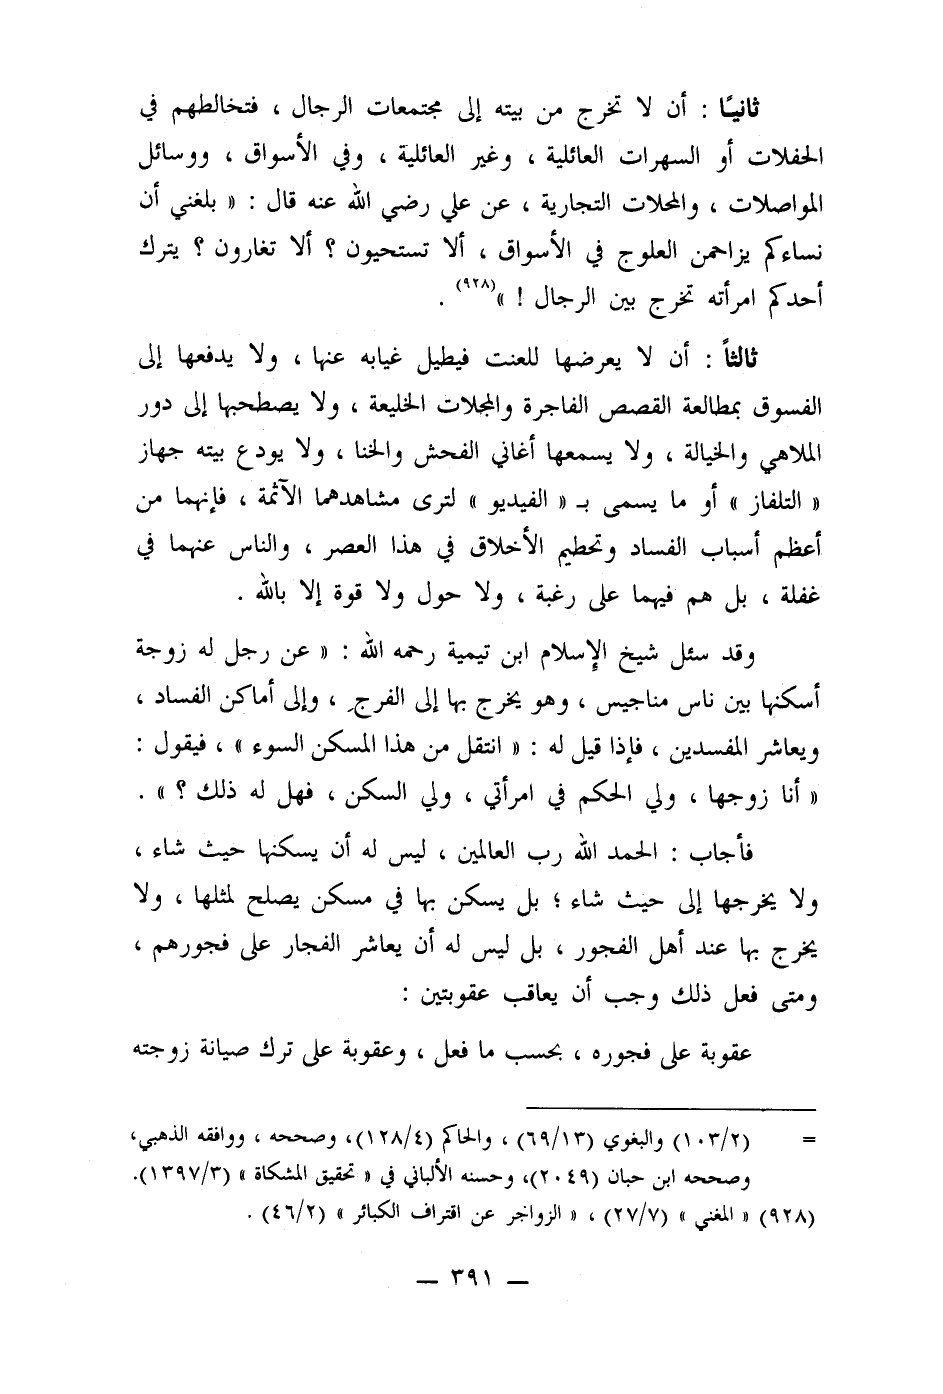 ثانيًا : أن لا تخرج من بيته إلى مجتمعات الرجال ، فتخالطهم في
الحفلات أو السهرات العائلية ، وغير العائلية ، وفي الأسواق ، ووسائل
المواصلات ، والمحلات التجارية ، عن علي رضي الله عنه قال : « بلغني أن
نساءكم يزاحمن العلوج في الأسواق ، ألا تستحيون ؟ ألا تغارون ؟ يترك
أحدكم امرأته تخرج بين الرجال ! »(٩٢٨) .
ثالثاً : أن لا يعرضها للعنت فيطيل غيابه عنها ، ولا يدفعها إلى
الفسوق بمطالعة القصص الفاجرة والمجلات الخليعة ، ولا يصطحبها إلى دور
الملاهي والخيالة ، ولا يسمعها أغاني الفحش والخنا ، ولا يودع بيته جهاز
« التلفاز » أو ما يسمى بـ « الفيديو » لترى مشاهدهما الآثمة ، فإنهما من
أعظم أسباب الفساد وتحطيم الأخلاق في هذا العصر ، والناس عنهما في
غفلة ، بل هم فيهما على رغبة ، ولا حول ولا قوة إلا بالله .
وقد سئل شيخ الإسلام ابن تيمية رحمه الله : « عن رجل له زوجة
أسكنها بين ناس مناجيس ، وهو يخرج بها إلى الفرج ، وإلى أماكن الفساد ،
ويعاشر المفسدين ، فإذا قيل له : « انتقل من هذا المسكن السوء » ، فيقول :
« أنا زوجها ، ولي الحكم في امرأتي ، ولي السكن ، فهل له ذلك ؟ » .
فأجاب : الحمد الله رب العالمين ، ليس له أن يسكنها حيث شاء ،
ولا يخرجها إلى حيث شاء ؛ بل يسكن بها في مسكن يصلح لمثلها ، ولا
يخرج بها عند أهل الفجور ، بل ليس له أن يعاشر الفجار على فجورهم ،
ومتى فعل ذلك وجب أن يعاقب عقوبتين :
عقوبة على فجوره ، بحسب ما فعل ، وعقوبة على ترك صيانة زوجته
= (١٠٣/٢) والبغوي (٦٩/١٣) ، والحاكم (١٢٨/٤)، وصححه ، ووافقه الذهبي،
وصححه ابن حبان (٢٠٤٩)، وحسنه الألباني في « تحقيق المشكاة » (١٣٩٧/٣).
(٩٢٨) « المغني » (٢٧/٧) ، « الزواجر عن اقتراف الكبائر » (٤٦/٢) .
— ٣٩١ —